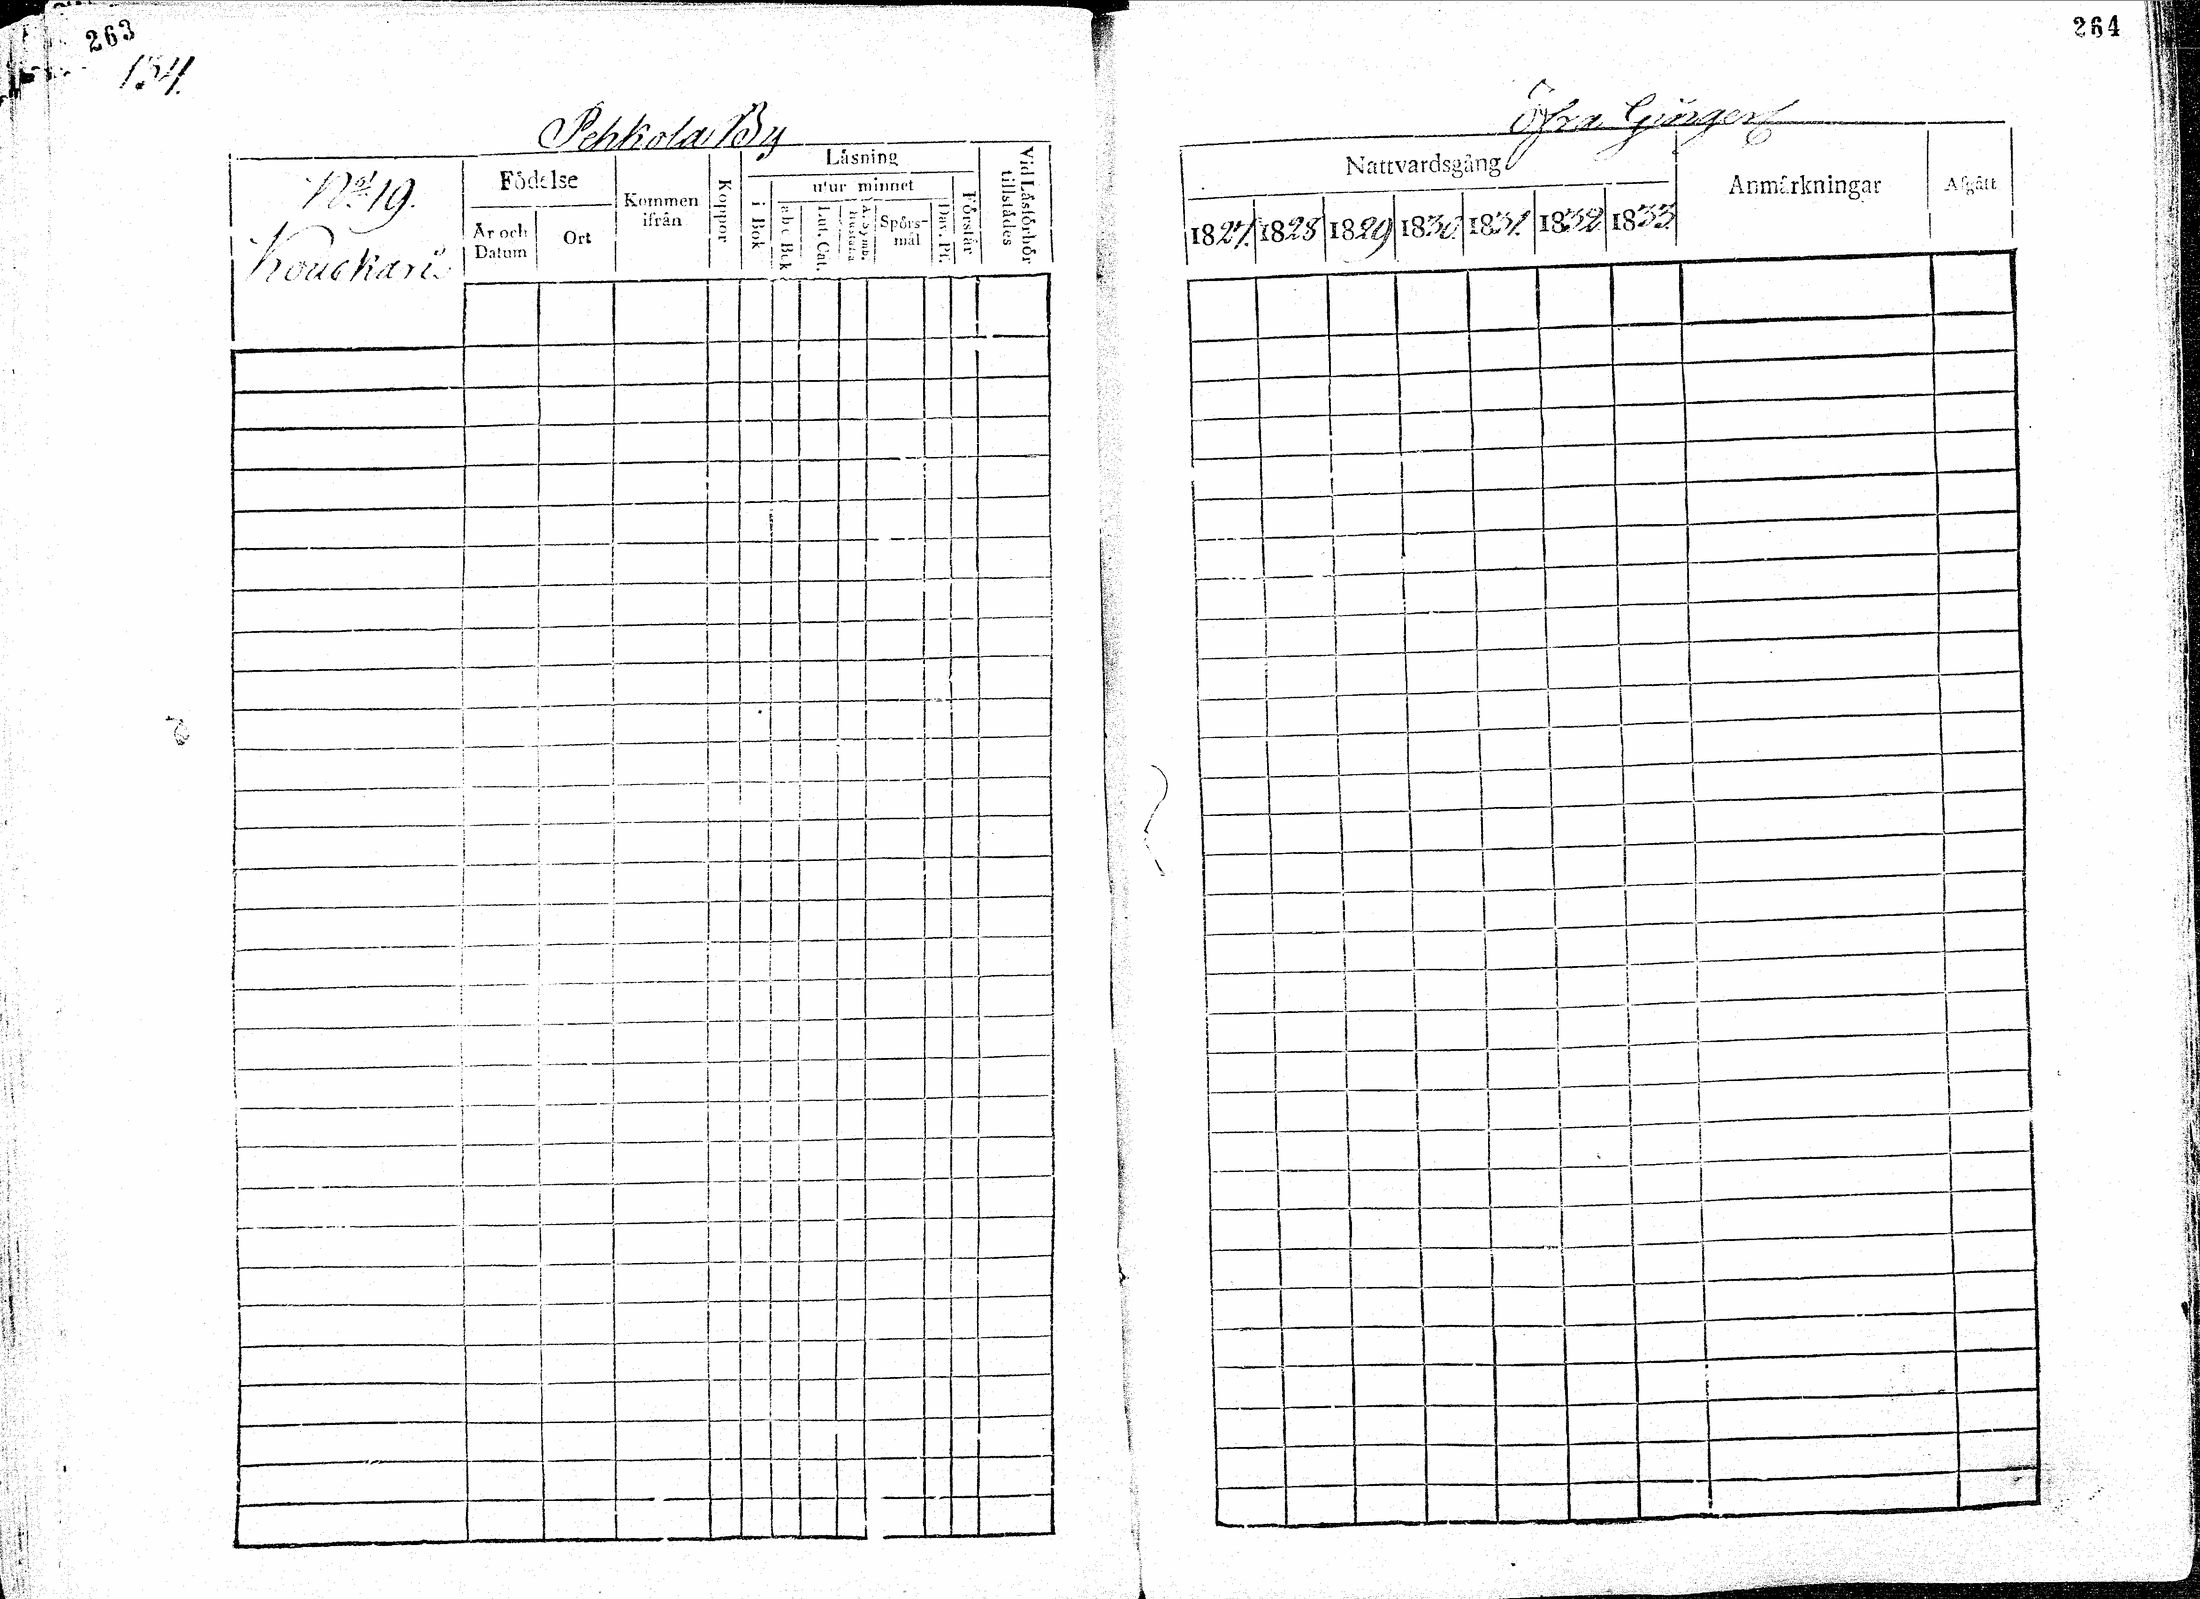 263
134.
Pehkola By
No 19.
Kouckari
Födelse
År och Datum
Ort
Kommen ifrån
Koppor
Läsning
i Bok
utur minnet
abc Bok
Lut. Cat.
A. Symb.
Hustafla
Spörs-mål
Dav. Ps.
Förstår
Vid Läsförhör tillstädes
264
Öfra
Nattvardsgång
1827.
1828
1829
1830.
1831.
1832.
1833.
Anmärkningar
Afgått